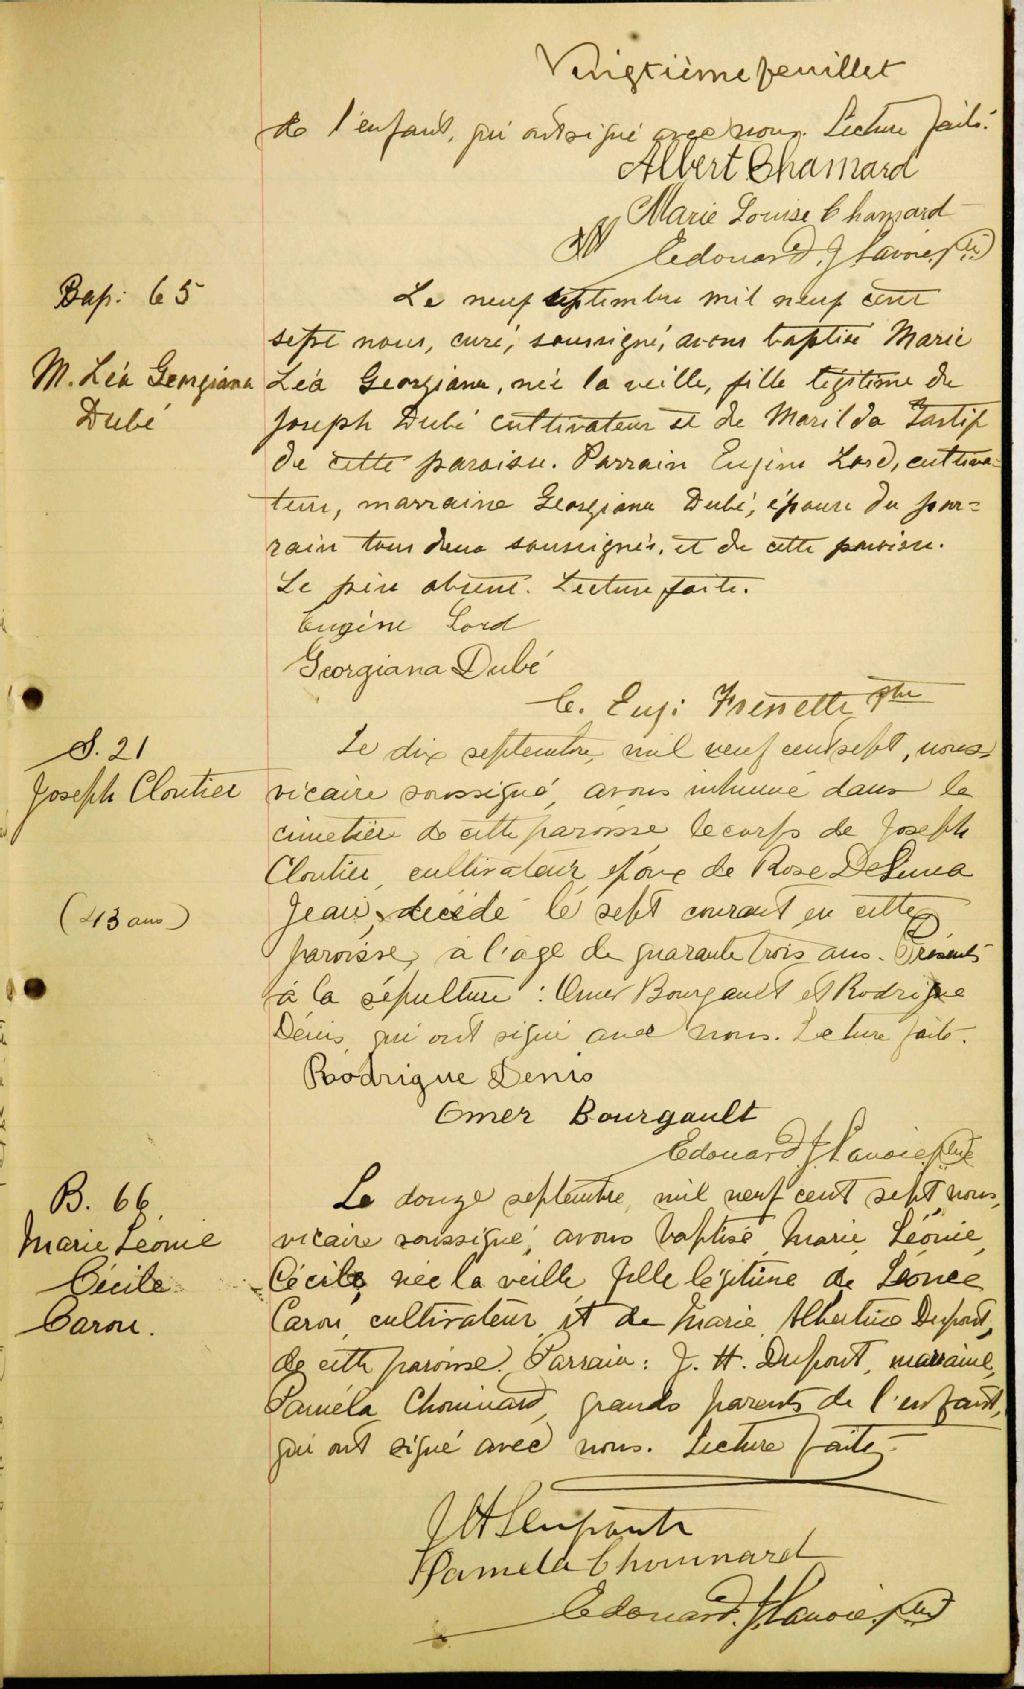 Vingtième feuillet
de l'enfant, qui ont signé avec nous. Lecture faite.
Albert Chamard
Marie Louise Chamard
Edouard J. Lavoie, ptre
Bap: 65
M. Léa Georgiana
Dubé
Le neuf septembre mil neuf cent
sept nous, curé, soussigné, avons baptisé Marie
Léa Georgiana, née la veille, fille légitime de
Joseph Dubé cultivateur et de Marilda Gastif
de cette paroisse. Parrain Eugène Lord, cultiva-
teur, marraine Georgiana Dubé, épouse du par=
rain tous deux soussignés, et de cette paroisse.
Le père absent. Lecture faite.
Eugène Lord
Georgiana Dubé
C. Eug: Frenette Ptre
S. 21
Joseph Cloutier
(43 ans)
Le dix septembre, mil neuf cent sept, nous,
vicaire soussigné, avons inhumé dans le
cimetière de cette paroisse le corps de Joseph
Cloutier, cultivateur époux de Rose DeLima
Jean, décédé le sept courant en cette
paroisse, à l'âge de quarante trois ans. Présents
à la sépulture : Omer Bourgault et Rodrigue
Dénis qui ont signé avec nous. Lecture faite.
Rodrigue Denis
Omer Bourgault
Edouard J. Lavoie, ptre
B. 66
Marie Léonie
Cécile
Caron.
Le douze septembre, mil neuf cent sept, nous,
vicaire soussigné, avons baptisé Marie, Léonie,
Cécile, née la veille fille légitime de Léonce
Caron, cultivateur, et de Marie Albertine Dupont,
de cette paroisse. Parrain: J. H. Dupont, marraine,
Paméla Chouinard, grands parents de l'enfant,
qui ont signé avec nous. Lecture faite.
J H Dupont
Pamela Chouinard
Edouard J. Lavoie, ptre